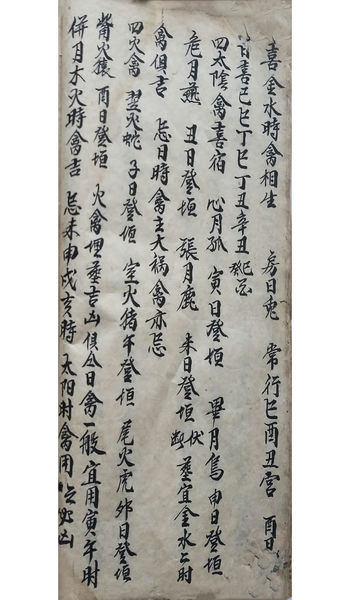 喜金水時禽相生 房日兔 常行巳酉丑宮 酉日
喜己巳丁巳丁丑辛丑癸巳
四太陰禽喜宿 心月狐 寅日登垣 畢月烏申日登垣
危月燕 丑日登垣 張月鹿 未日登垣 伏断 葬宜金水二时
禽俱吉 忌日時禽主大禍禽亦忌
四火禽 翌火蛇 子日登垣 室火猪午登垣 尾火虎卯日登垣
觜火猿 酉日登垣 火禽埋葬吉凶俱仝日禽一般 宜用寅午时
併月木火時禽吉 忌未申戌亥時 太阳时禽用